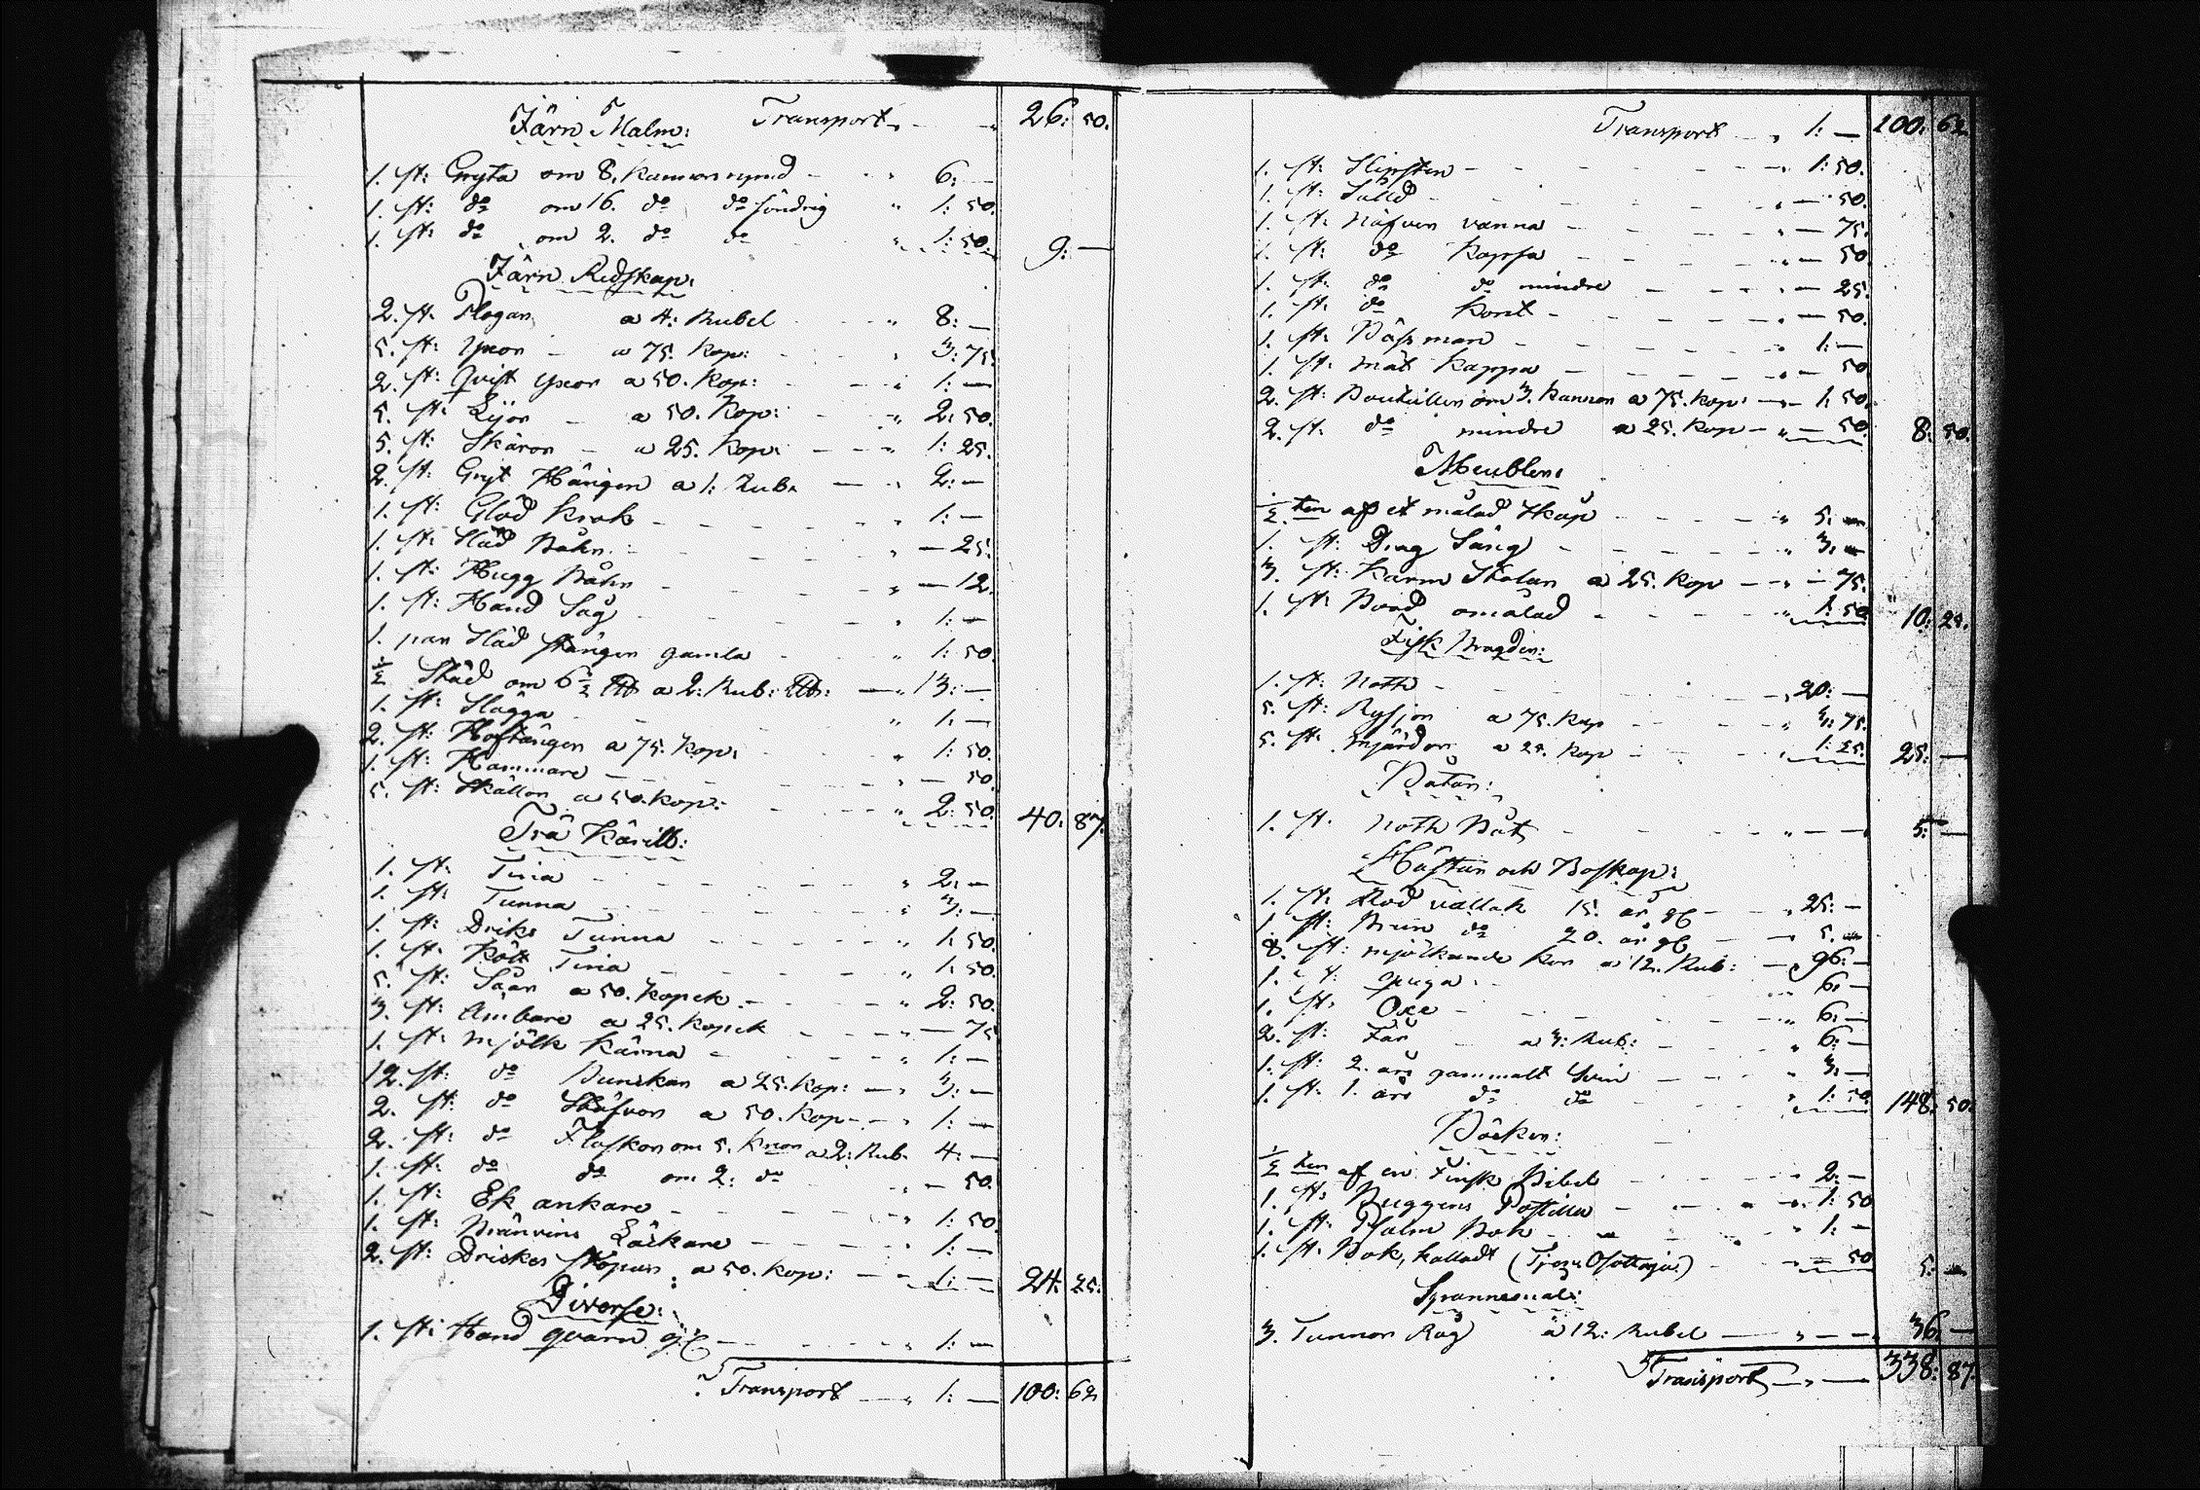 Järn Malm: Transport „ — „ 26: 50.
1. st: Gryta om 8. kannors rymd - - „ 6: —
1. st: do om 16. do do söndrig „ 1: 50.
1. st: do om 2. do do - „ 1: 50. 9: —
Järn Redskap:
2. st: Plogar a 4: Rubel - - „ 8: —
5. st: Yxor - a 75. kop: - - „ 3: 75.
2. st: Qvist yxor a 50. kop: - - „ 1: —
5. st: Lijor - a 50. Kop: - - „ 2: 50.
5. st: Skäror - a 25. kop: - - „ 1: 25.
2. st: Gryt Hängen a 1: Rub: - - „ 2: —
1. st: Glöd krok - - - - „ 1: —
1. st: Slåd - - - „ — 25.
1. st: Hugg - - - „ — 12.
1. st: Hand Såg - - - „ 1: —
1. par Släd stänger gamla - - „ 1: 50.
½ Städ om 6½ a 2: Rub: — „ 13: —
1. st: Slägga - - - „ 1: —
2. st: Hoftänger a 75. kop: - - „ 1: 50.
1. st: Hammare - - - „ — 50.
5. st: Skällor a 50. kop: - - „ 2: 50. 40: 87.
Trä Kärill:
1. st: Tina - - - - „ 2: —
1. st: Tunna - - - - „ 3: —
1. st: Dricks Tunna - - - „ 1: 50.
1. st: Kött Tina - - - „ 1: 50.
5. st: Såar a 50. kopek - - - „ 2: 50.
3. st: Ämbare a 25. kopek - - „ — 75
1. st: mjölk kärna - - - „ 1: —
12. st: do Bunckar a 25. kop: — „ 3: —
2. st: do Stäfvor a 50. kop - - „ 1: —
2. st: do Flaskor om 5. knor a 2: Rub. 4: —
1. st: do do om 2: do „ — 50.
1. st: Ek ankare - - - „ 1: 50.
1. st: Bränvins Läckare - - - „ 1: —
2. st: Drickes Stopar a 50. kop: - - „ 1: — 24: 25.
Diverse:
1. st: Hand qvarn - - - „ 1: —
Transport — „ 1: — 100: 62
Transport — „ 1: — 100: 62.
1. st: Slipsten - - - - „ 1: 50.
1. st: Såld - - - - „ — 50.
1. st: Näfver vanna - - - „ — 75.
1. st: do Koppa - - - „ — 50
1. st: do do mindre - - „ — 25.
1. st: do kont - - - „ — 50.
1. st: Bässman - - - „ 1: —
1. st: mät kappa - - - „ — 50
2. st: Bouteiller om 3. kannor a 75. kop: — „ 1: 50.
2. st: do mindre a 25. kop — „ — 50. 8: 50.
Meubler:
½ ten af et målad Skåp - - - „ 5: —
1. st: Drag Säng - - - - „ 3: —
3. st: Karm Stolar a 25. kop - - „ — 75.
1. st: Bord omålad - - - „ 1: 50 10: 25.
Fisk Bragder:
1. st: Noth - - - - „ 20: —
5. st: Rysjor a 75. kop - - „ 3: 75.
5. st: mjärdor a 25. kop - - „ 1: 25. 25: —
Båtar:
1. st: Noth Båt - - - „ — — 5: —
Hästar och Boskap:
1. st: Röd vallak 15. år gl - - „ 25: —
1. st: Brun do 20. år gl - - 5. —
8. st: mjölkande kor a 12. Rub: — „ 96: —
1. st: qviga - - - „ 6: —
1. st: Oxe - - - - „ 6: —
2. st: Får - a 3: Rub: - - „ 6: —
1. st: 2. års gammalt Svin - - „ 3: —
1. st: 1. års do do - - „ 1: 50. 148: 50.
Böcker:
½ ten af en Finsk Bibel - - - 2: —
1. st: Postilla - - - 1: 50
1. st: Psalm Bok - - - „ 1: —
1. st: Bok, kalladt - - „ — 50 5: —
Spannemål:
3. Tunnor Råg a 12: Rubel — „ — — 36. —
Transport — „ — 338: 87.